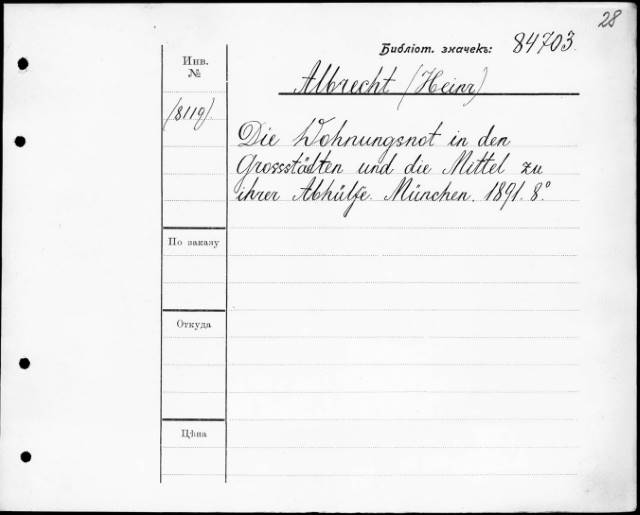 28
Библіот. значекъ: 84703.
Инв. №
Albrecht (Heinr)
(8119).
Die Wohnungsnot in den
Grossstädten und die Mittel zu
ihrer Abhülfe. München. 1891. 8º
По заказу
Откуда
Цѣна